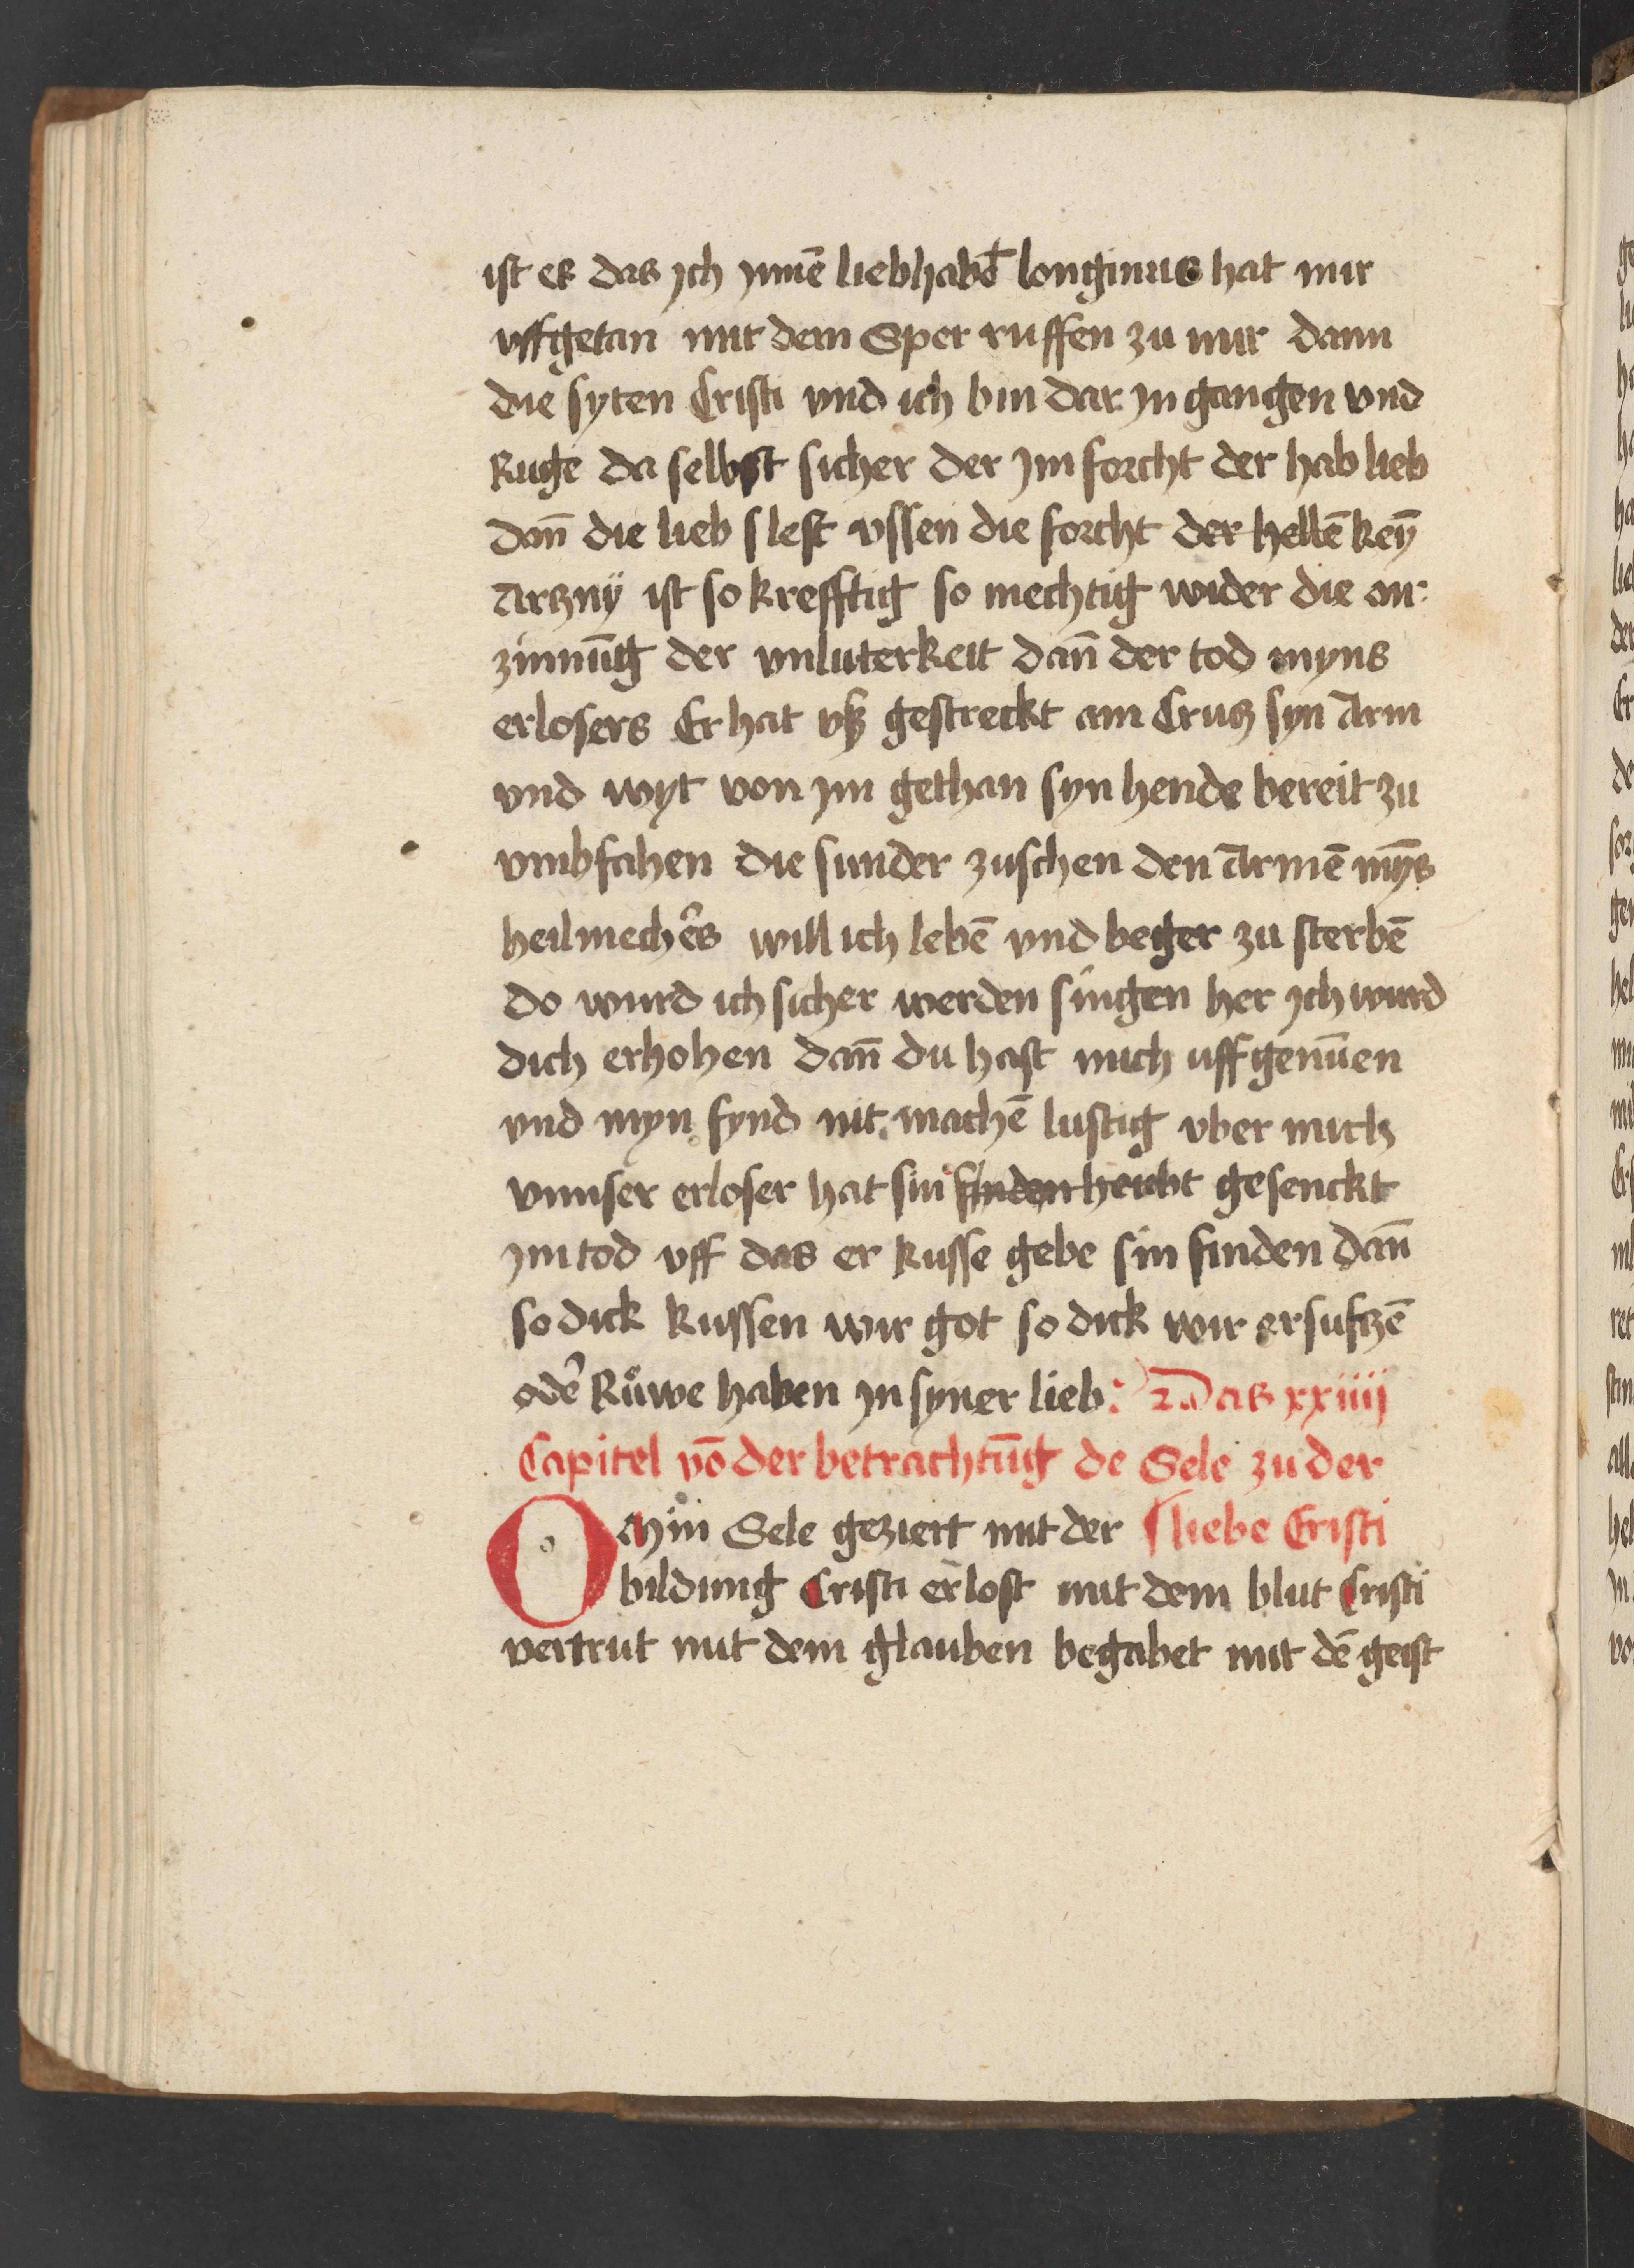 ist es das ich jnnē liebhabd̄ longinus hat mir
vffgetan mit dem Sper ruffen zu mir dann
die syten Cristi vnd ich bin dar jn gangen vnd
Ruge da selbst sicher der jm forcht der hab lieb
dan̄ die lieb slest vssen die forcht der hellē keȳ
Arczny ist so krefftig so mechtig wider die an:
zinnūg der vnluterkeit dan̄ der tod myns
erlosers Er hat vß gestreckt am Crucz syn Arm
vnd wyt von jm gethan syn hende bereit zu
vmbfahen die sunder zuschen den Armē mȳs
heilmechers will ich lebē vnd beger zu sterbē
do wurd ich sicher werden singen her jch wurd
dich erhohen dan̄ du hast mich uff genūen
vnd myn fynd nit machē lustig vber mich
vnnser erloser hat sin finden heubt gesenckt
jm tod vff das er kusse gebe sin finden dan̄
so dick kussen wir got so dick wir ersufczē
oder Růwe haben jn syner lieb: Das xxiiij
Capitel vō der betrachtūg de Sele zu der
O Myn Sele geziert mit der liebe Cristi
bildung Cristi erlost mit dem blut Cristi
vertrut mit dem glauben begabet mit dē geist